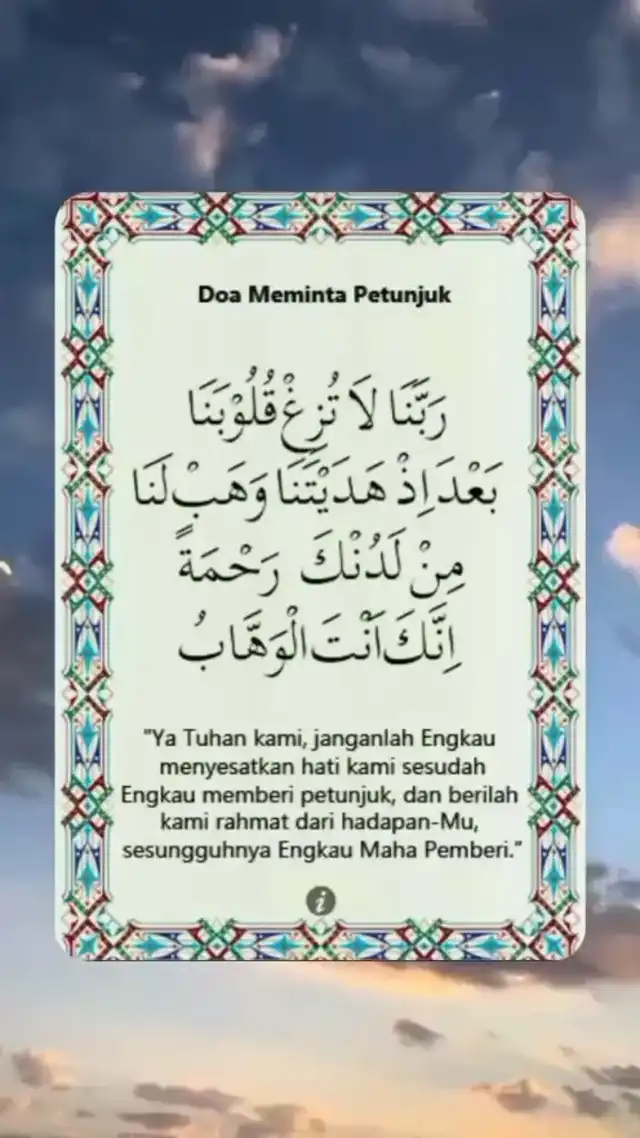 Doa Meminta Petunjuk
رَبَّنَا لَا تُزِغْ قُلُوْبَنَا
بَعْدَ اِذْ هَدَيْتَنَا وَهَبْ لَنَا
مِنْ لَدُنْكَ رَحْمَةً
اِنَّكَ اَنْتَ الْوَهَّابُ
"Ya Tuhan kami, janganlah Engkau
menyesatkan hati kami sesudah
Engkau memberi petunjuk, dan berilah
kami rahmat dari hadapan-Mu,
sesungguhnya Engkau Maha Pemberi."
i